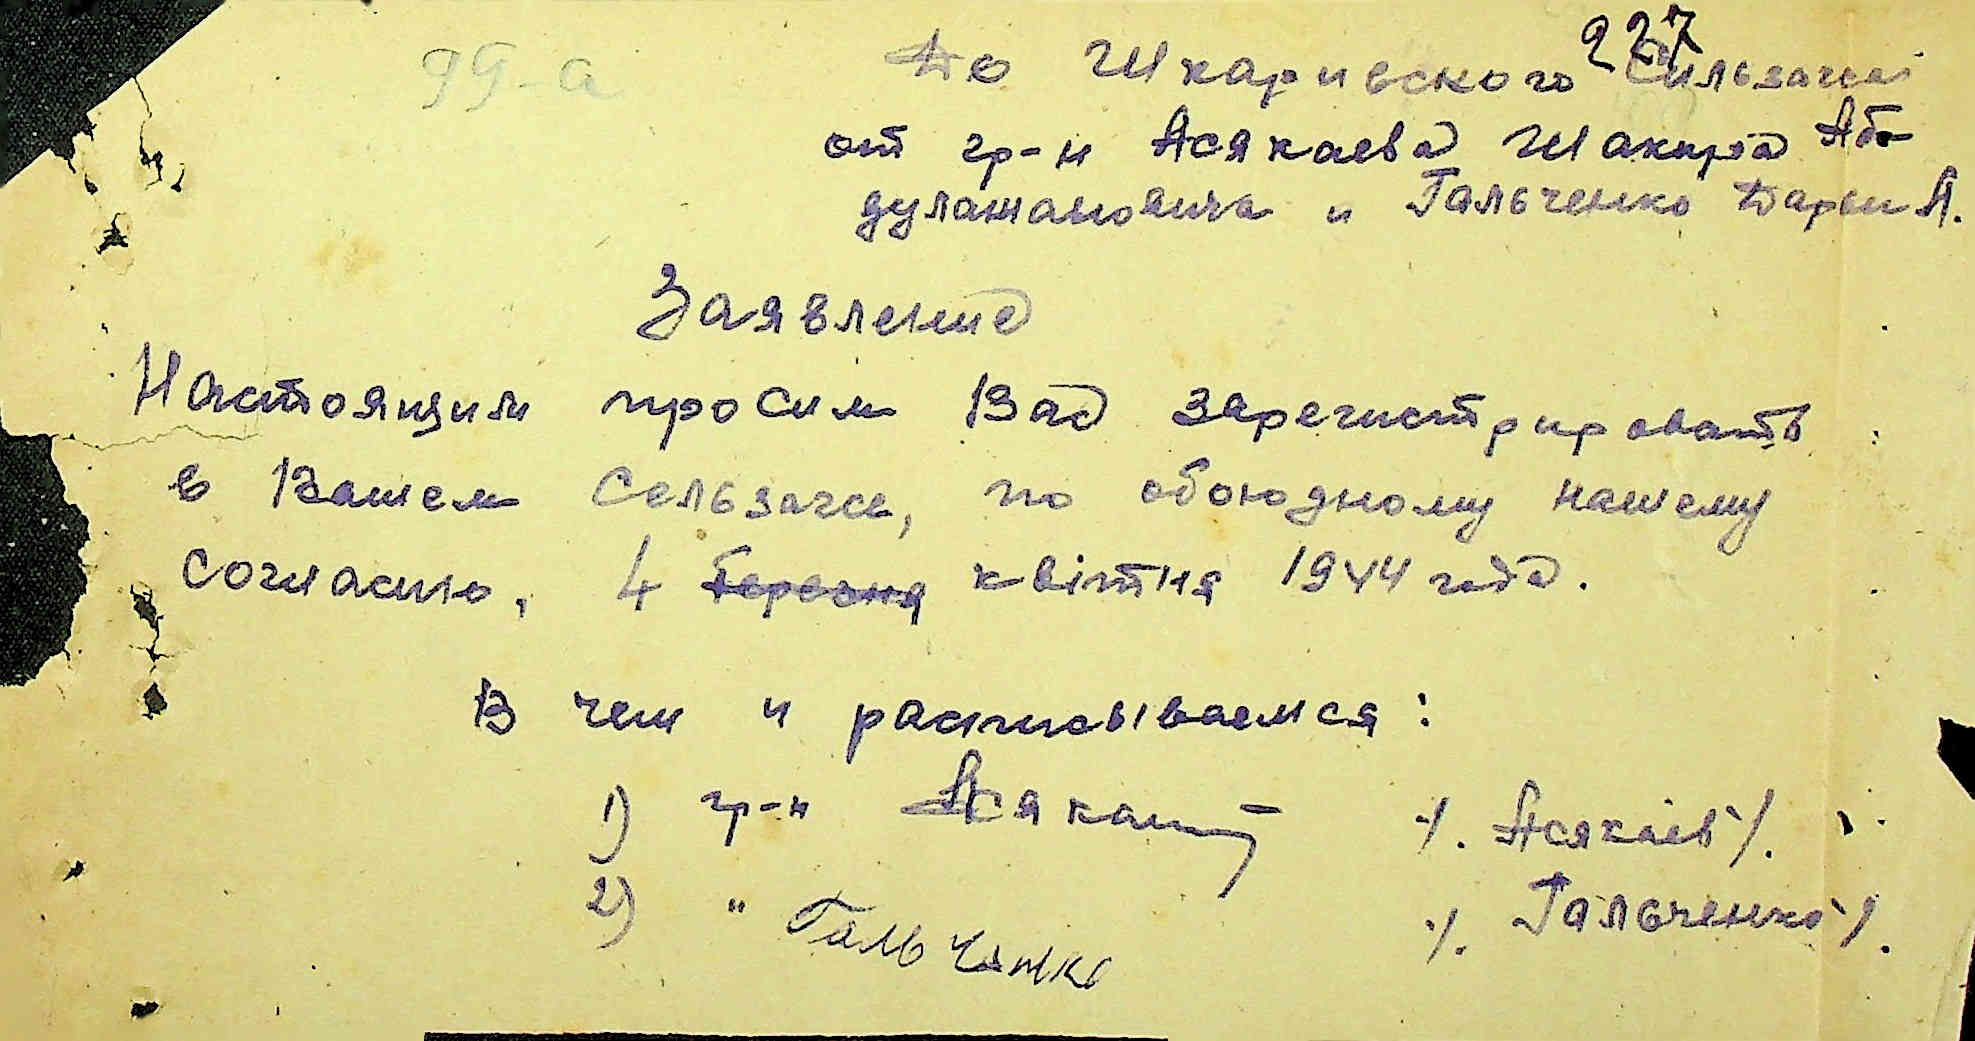 227
99-а
До Шкаривского Сильзагса
от гр-н Асякаева Шакира Аб-
дулажановича и Гальченко Дарьи А.
Заявление
Настоящим просим Вас зарегистрировать
в Вашем Сельзагсе, по обоюдному нашему
согласию, 4 березня квітня 1944 года.
В чем и расписываемся:
1) гр-н Асякаев /. Асякаев /.
2) " Гальченко /. Гальченко /.